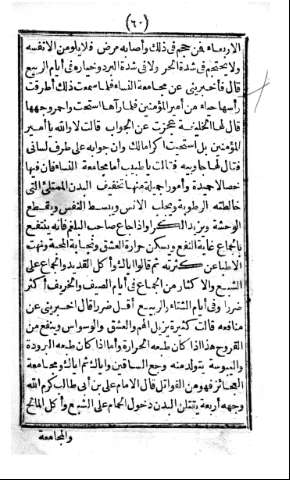 (٦٠)
الاربعاء فمن حجم فى ذلك وأصابه مرض فلا يلومن الانفسه
ولا يحتجم فى شدة الحر ولا فى شدة البرد وخياره فى أيام الربيع
قال فأخبرينى عن مجامعة النساء فلما سمعت ذلك أطرقت
رأسها حياء من أمير المؤمنين فلما رآها استحت واحمر وجهها
قال لها الخليفة عجزت عن الجواب قالت لا والله يا أمير
المؤمنين بل استحيت اكرامالك وان جوابه على طرف لسانى
فقال لها جاوبيه فقالت يا طبيب أما مجامعة النساء فان فيها
خصالا حميدة وأمورا جميلة منها تخفيف البدن الممتلئ التى
خالطته الرطوبة ويجلب الانس ويبسط النفس ويقطع
الوحشة ويزيد الكرا واذا جاع صاحب البلغم فانه ينتفع
بالجماع غاية النفع ويسكن حرارة العشق ونجابة المحبة ونهت
الاطباء عن كثرته ثم قالوا اياك وأكل القديد والجماع على
الشبع والاكثار من الجماع فى أيام الصيف والخريف أكثر
ضررا وفى أيام الشتاء والربيع أقل ضررا قال اخبرينى عن
منافعه قالت كثيرة يزيل الهم والعشق والوسواس وينفع من
القروح هذا اذا كان طبعه الحرارة وأما اذا كان طبعه البرودة
واليبوسة يتولد منه وجع الساقين واياك ثم اياك ومجامعة
العجائز فهو من القواتل قال الامام على بن أبى طالب كرم الله
وجهه أربعة يقتلن البدن دخول الحمام على الشبع وأكل المالح
والمجامعة